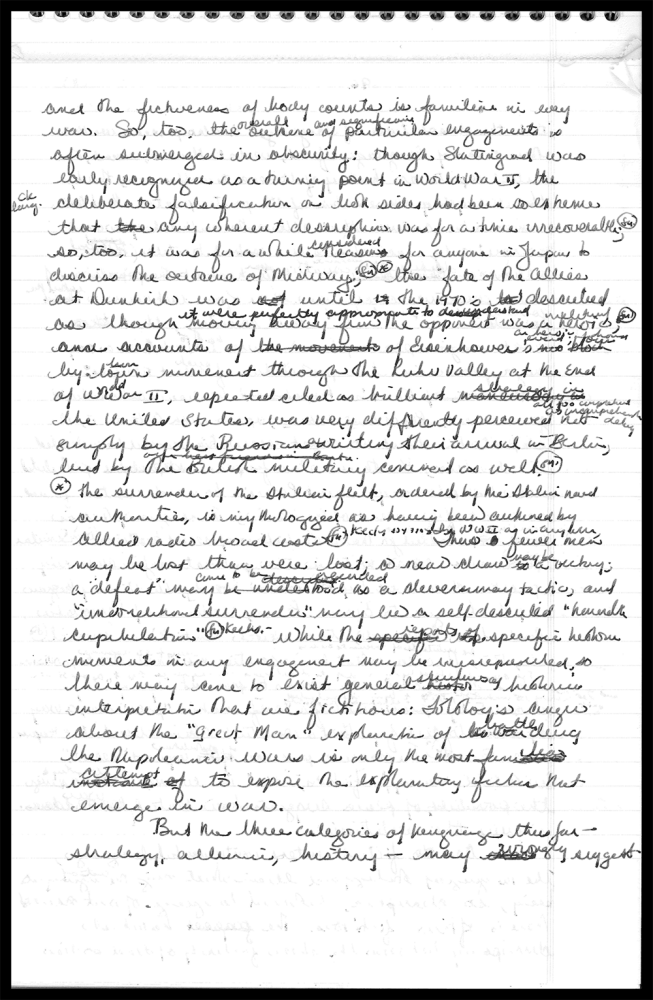 and the fictiveness of body counts is familiar in every
war. So, too, the overall outcome and significance of particular engagements is
often submerged in obscurity: though Stalingrad was
early recognized as a turning point in World War II, the
deliberate falsification on both sides had been so extreme
ok
that the any coherent description was for a time irrecoverable; fn
so, too, it was for a while considered treasonous for anyone in Japan to
discuss the outcome of Midway; fn * the fate of the allies
at Dunkirk was until the 1970's described
as though it were perfectly appropriate to moving away from the opponent was a heroic fn
and accounts of the movements of Eisenhower's
by town movement through the Ruhr Valley at the end
of World War II, repeated cited as brilliant strategy in
the United States, was very differently perceived not
simply by the Russians awaiting their arrival in Berlin,
but by the British military command as well. fn
* The surrender of the Italian fleet, ordered by the Italian naval
authorities, is mythologized as having been authored by
allied radio broadcasts. fn Thus fewer men
may be lost than were lost; a near draw may be a victory;
a "defeat" may come to be understood, as a diversionary tactic, and
"unconditional surrender" may be a self-described "honorable
capitulation" fn Kecks. - While the specific reports of specific
moments in any engagement may be misrepresented, so
there may come to exist general historic
interpretation that are fictitious: Tolstoy's anger
about the "Great Man" explanation of battles during
the Napoleonic wars is only the most familiar
attempt of to expose the explanatory fiction that
emerge in war.
But the three categories of language thus far —
strategy, alliance, history — may wrongly suggest